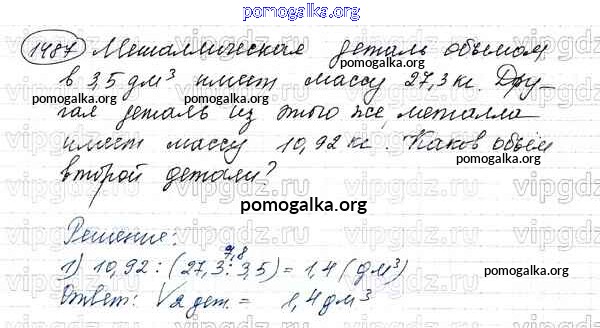 pomogalka.org
1487 Металлическая деталь объемом
в 3,5 дм³ имеет массу 27,3 кг. Дру-
pomogalka.org pomogalka.org
гая деталь из этого же металла
имеет массу 10,92 кг. Каков объём
pomogalka.org
второй детали?
pomogalka.org
Решение:
7,8
1) 10,92 : (27,3 : 3,5) = 1,4 (дм³)
pomogalka.org pomogalka.org
Ответ: V 2 дет. = 1,4 дм³
pomogalka.org